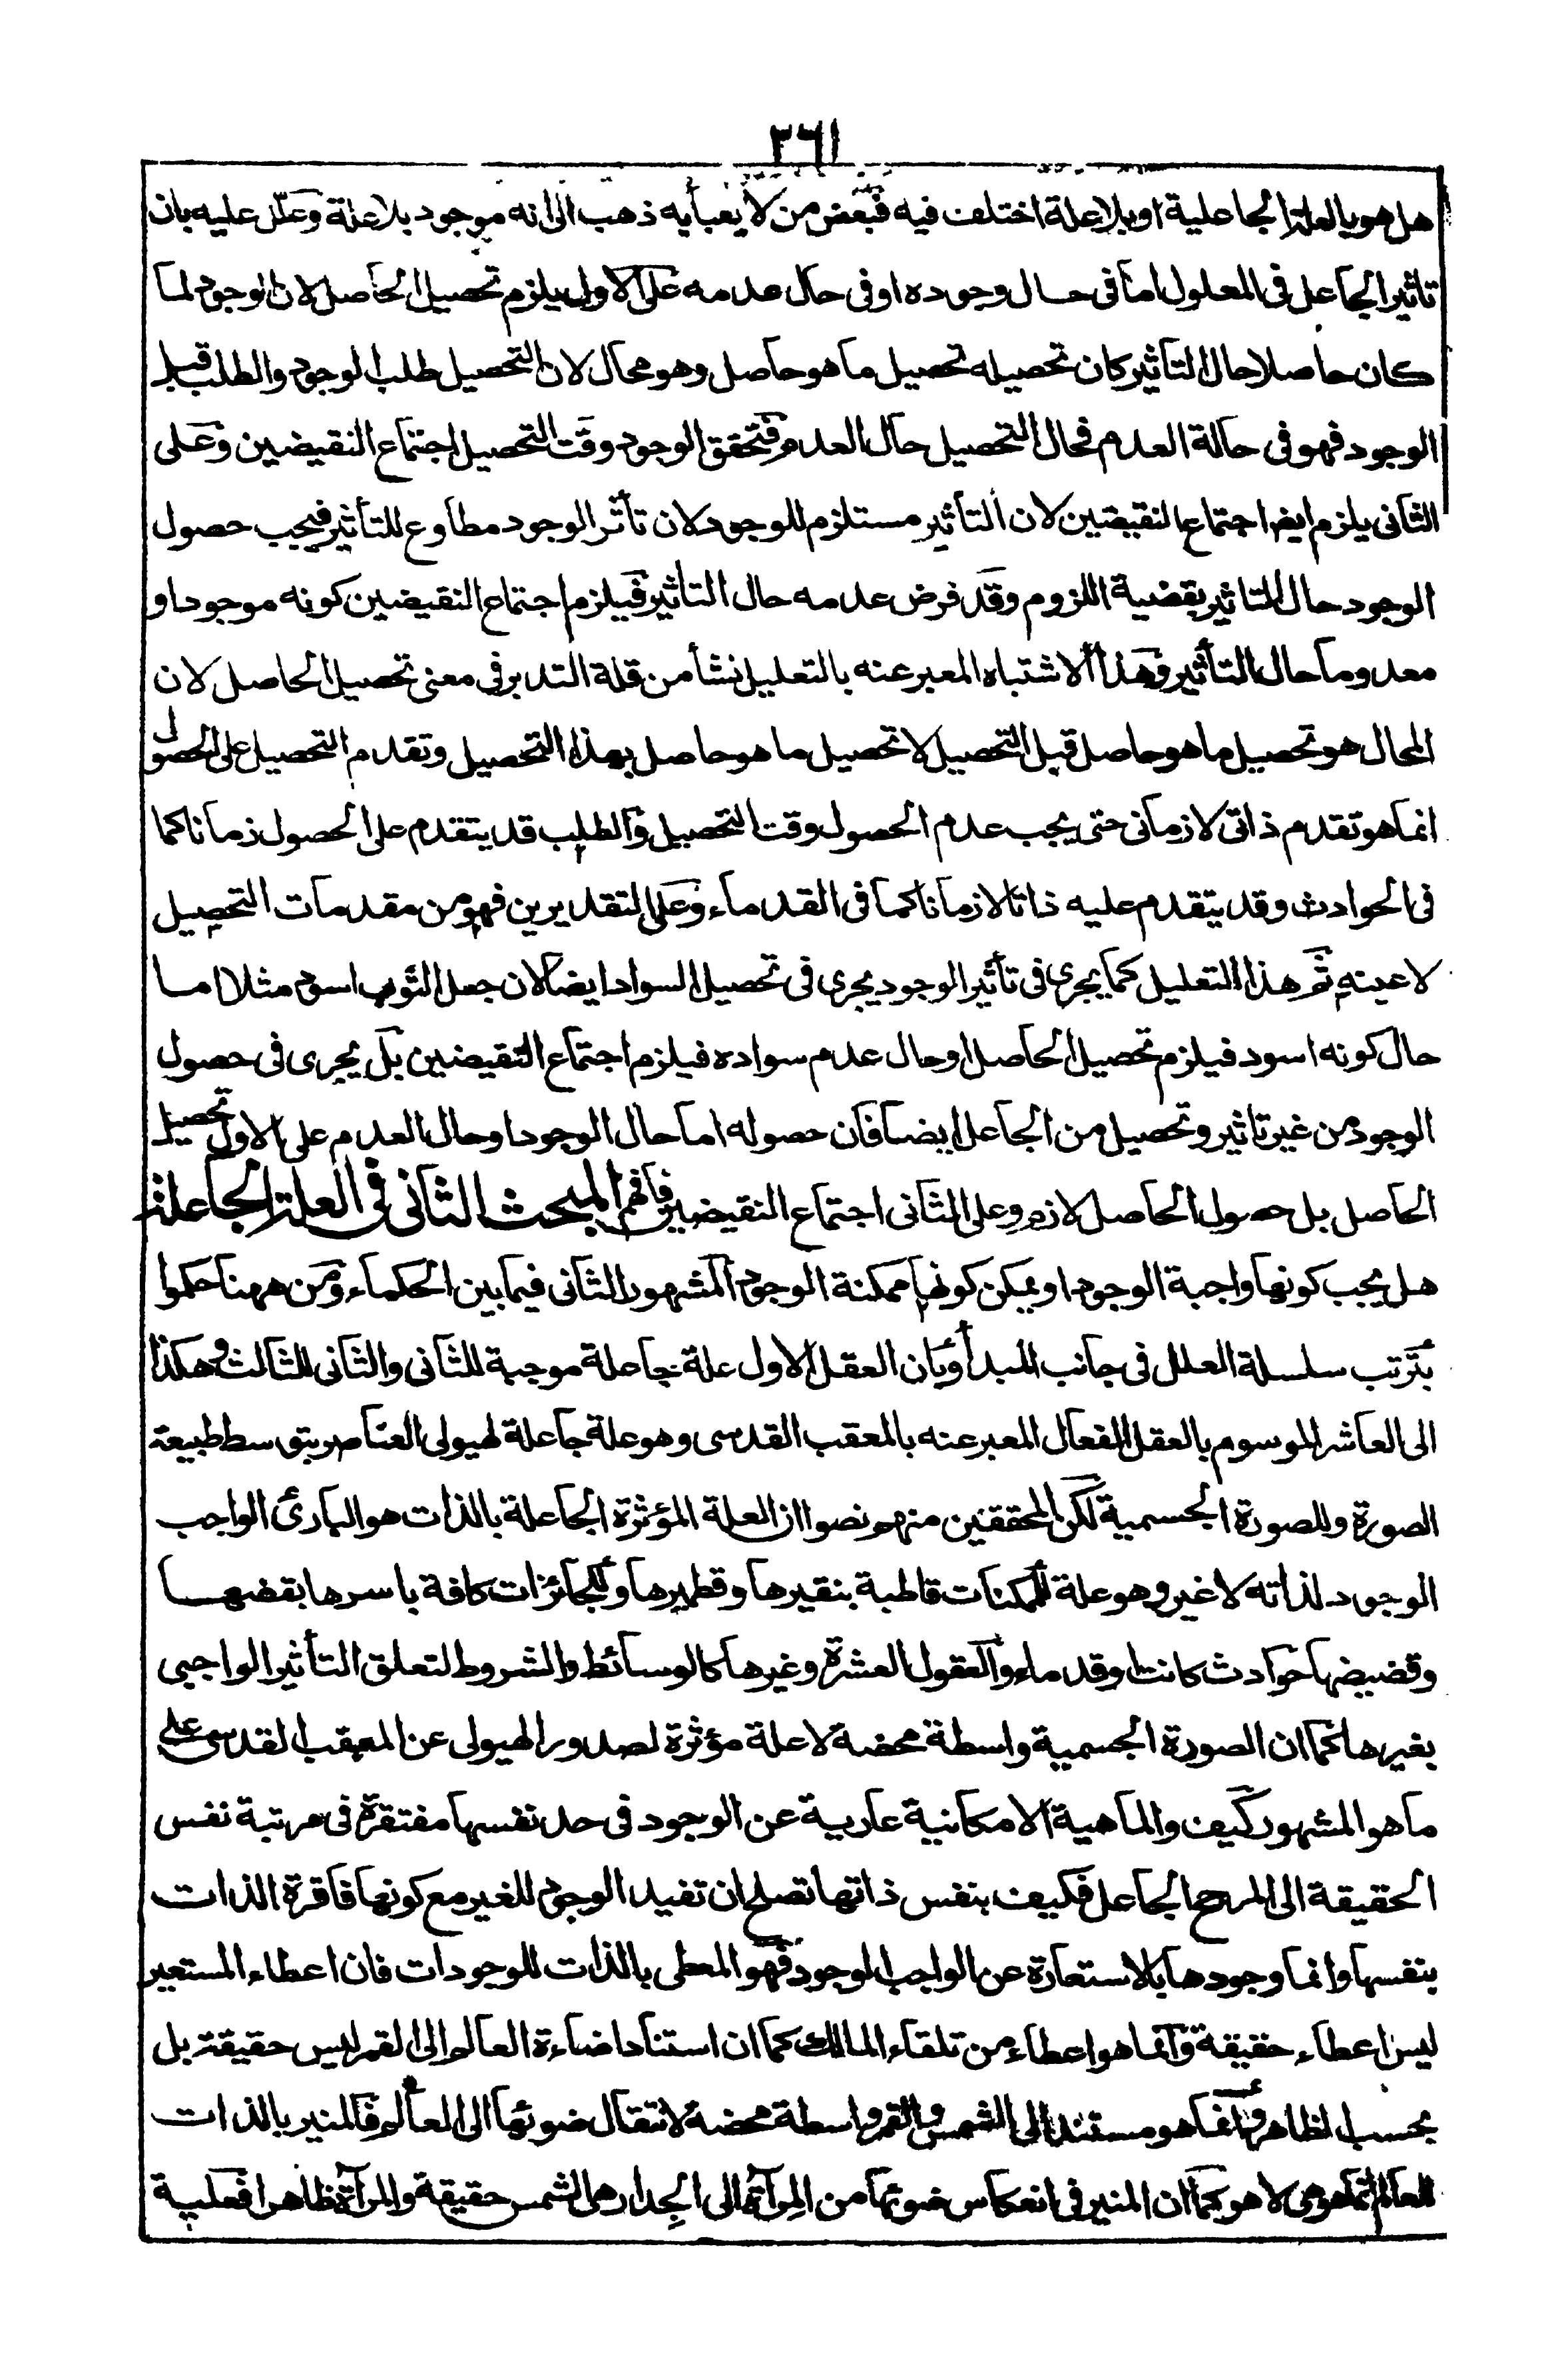 ٣٦١
هل هو بالعلة الجاعلية او بلا علة اختلف فيه فبعض من لا يعبأ به ذهب الى انه موجود بلا علة وعلل عليه بان
تاثير الجاعل فى المعلول اما فى حال وجوده او فى حال عدمه على الاول يلزم تحصيل الحاصل لان الوجود لما
كان حاصلا حال التأثير كان تحصيله تحصيل ما هو حاصل وهو محال لان التحصيل طلب الوجود والطلب قبل
الوجود فهو فى حالة العدم فحال التحصيل حال العدم فتحقق الوجود وقت التحصيل اجتماع النقيضين وعلى
الثانى يلزم ايضا اجتماع النقيضين لان التأثير مستلزم للوجود لان تأثر الوجود مطاوع للتأثير فيجب حصول
الوجود حال التاثير بقضية اللزوم وقد فرض عدمه حال التأثير فيلزم اجتماع النقيضين كونه موجودا و
معدوما حال التأثير وهذا الاشتباه المعبر عنه بالتعليل نشأ من قلة التدبر فى معنى تحصيل الحاصل لان
المحال هو تحصيل ما هو حاصل قبل التحصيل لا تحصيل ما هو حاصل بهذا التحصيل وتقدم التحصيل على الحصول
انما هو تقدم ذاتى لا زمانى حتى يجب عدم الحصول وقت التحصيل والطلب قد يتقدم على الحصول زمانا كما
فى الحوادث وقد يتقدم عليه ذاتا لا زمانا كما فى القدماء وعلى التقديرين فهو من مقدمات التحصيل
لا عينه ثم هذا التعليل كما يجرى فى تأثير الوجود يجرى فى تحصيل السواد ايضا لان جعل الثوب اسود مثلا اما
حال كونه اسود فيلزم تحصيل الحاصل او حال عدم سواده فيلزم اجتماع النقيضين بل يجرى فى حصول
الوجود من غير تاثير وتحصيل من الجاعل ايضا فان حصوله اما حال الوجود او حال العدم على الاول تحصيل
الحاصل بل حصول الحاصل لازم وعلى الثانى اجتماع النقيضين فافهم المبحث الثانى فى العلة الجاعلة
هل يجب كونها واجبة الوجود او يمكن كونها ممكنة الوجود المشهور الثانى فيما بين الحكماء ومن ههنا حكموا
بترتب سلسلة العلل فى جانب المبدأ وبان العقل الاول علة جاعلة موجبة للثانى والثانى للثالث وهكذا
الى العاشر الموسوم بالعقل الفعال المعبر عنه بالمعقب القدسى وهو علة جاعلة لهيولى العناصر بتوسط طبيعة
الصورة وللصورة الجسمية لكن المحققين منهم نصوا ان العلة المؤثرة الجاعلة بالذات هو البارئ الواجب
الوجود لذاته لا غير وهو علة للممكنات قاطبة بنقيرها وقطميرها وللجائزات كافة باسرها بقضها
وقضيضها حوادث كانت او قدماء والعقول العشرة وغيرها كالوسائط والشروط لتعلق التأثير الواجبى
بغيرها كما ان الصورة الجسمية واسطة محضة لا علة مؤثرة لصدور الهيولى عن المعقب القدسى على
ما هو المشهور كيف والماهية الامكانية عارية عن الوجود فى حد نفسها مفتقرة فى مرتبة نفس
الحقيقة الى المرجح الجاعل فكيف بنفس ذاتها تصلح ان تفيد الوجود للغير مع كونها فاقرة الذات
بنفسها وانما وجودها بالاستعارة عن الواجب الموجود فهو المعطى بالذات للوجودات فان اعطاء المستعير
ليس اعطاء حقيقة وانما هو اعطاء من تلقاء المالك كما ان استناد اضاءة العالم الى القمر ليس حقيقة بل
بحسب الظاهر وانما هو مستند الى الشمس والقمر واسطة محضة لانتقال ضوئها الى العالم فالمنير بالذات
للعالم انما هو هى لا هو كما ان المنير فى انعكاس ضوئها من المرآة الى الجدار هى الشمس حقيقة والمرآة ظاهرا فعلية